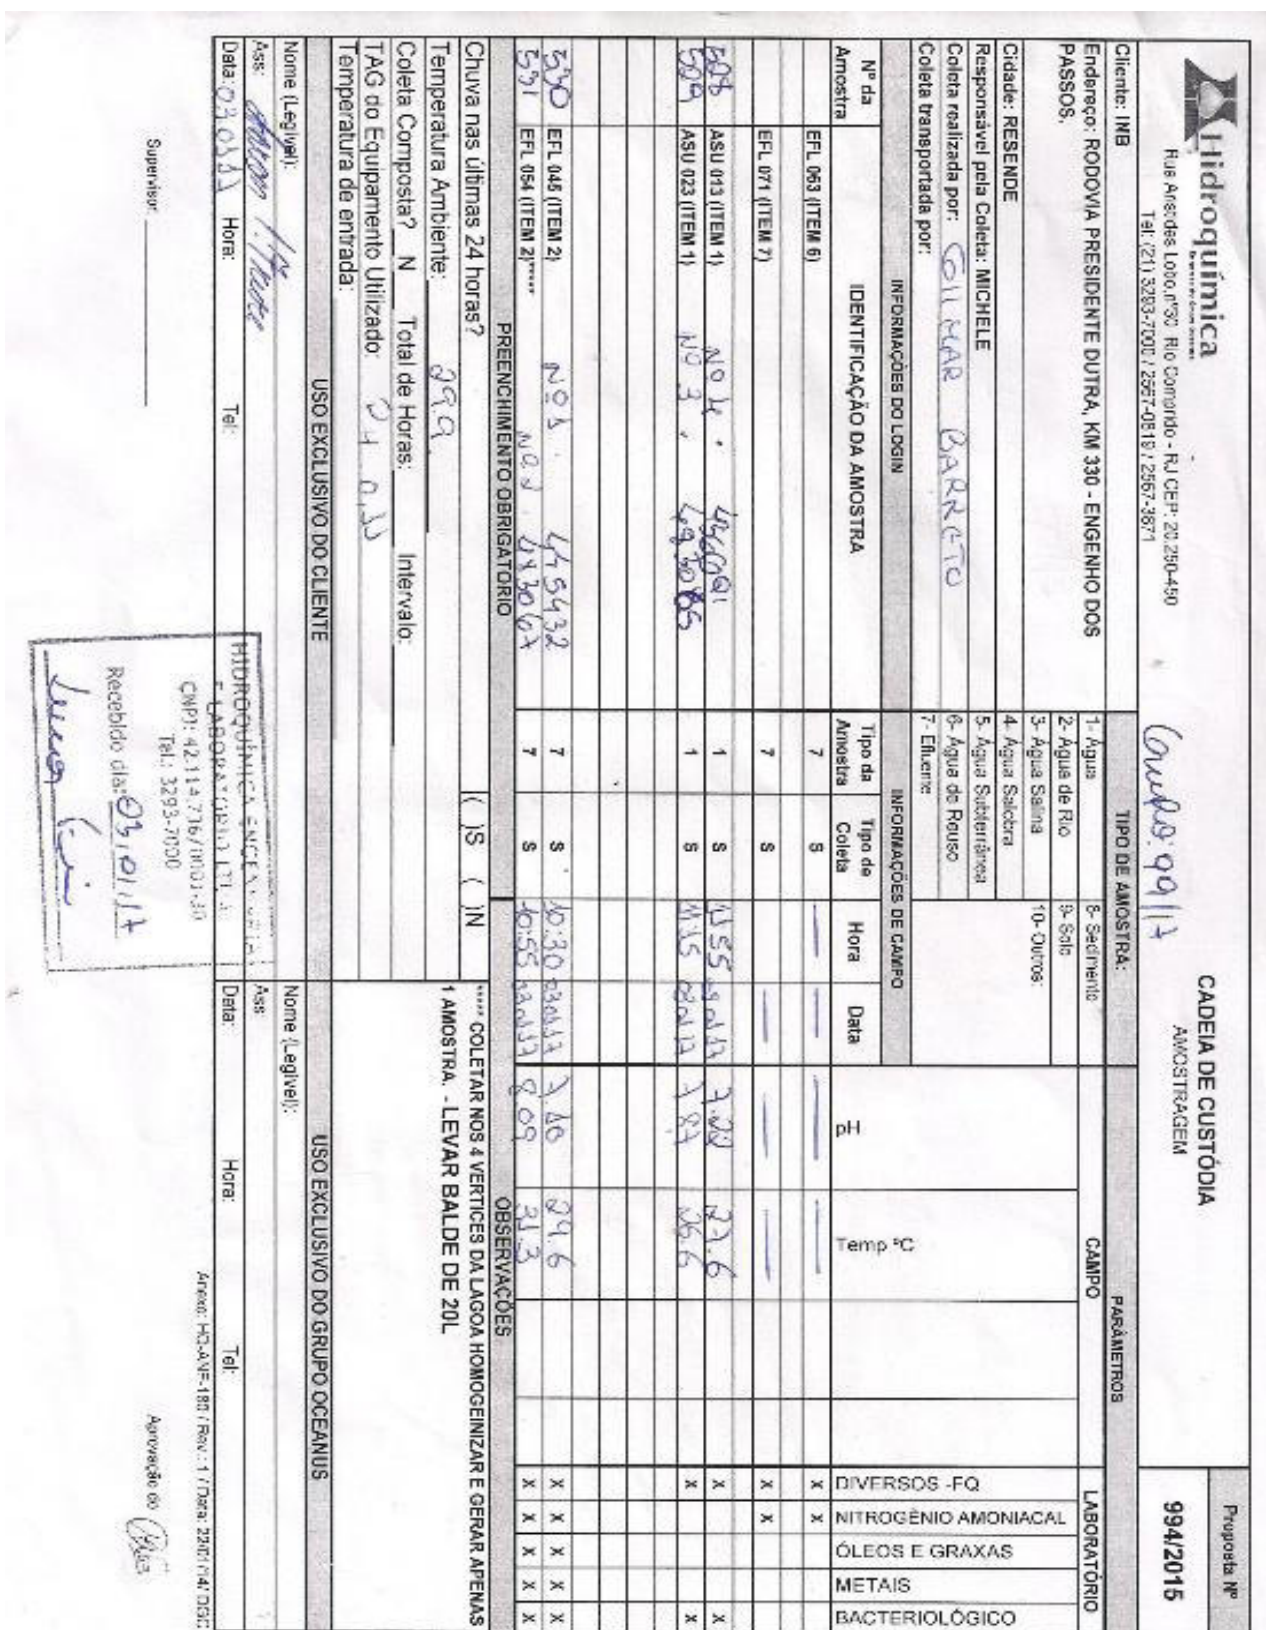 Hidroquímica
Rua Aristides Lobo, nº30 Rio Comprido - RJ CEP: 20.250-450
Tel: (21) 3293-7000 / 2567-0819 / 2567-3871
99/17
CADEIA DE CUSTÓDIA
AMOSTRAGEM
Proposta Nº
994/2015
Cliente: INB
Endereço: RODOVIA PRESIDENTE DUTRA, KM 330 - ENGENHO DOS
PASSOS.
Cidade: RESENDE
Responsavel pela Coleta: MICHELE
Coleta realizada por: GILMAR BARRETO
Coleta transportada por:
TIPO DE AMOSTRA:
1- Água
2- Água de Rio
3- Água Salina
4- Água Salobra
5- Água Subterrânea
6- Água de Reuso
7- Efluente
8- Sedimento
9- Solo
10- Outros:
PARÂMETROS
CAMPO
LABORATÓRIO
INFORMAÇÕES DO LOGIN
INFORMAÇÕES DE CAMPO
Nº da Amostra
IDENTIFICAÇÃO DA AMOSTRA
Tipo da Amostra
Tipo de Coleta
Hora
Data
pH
Temp ºC
DIVERSOS -FQ
NITROGÊNIO AMONIACAL
ÓLEOS E GRAXAS
METAIS
BACTERIOLÓGICO
EFL 063 (ITEM 6) 7 S — — — — X X
EFL 071 (ITEM 7) 7 S — — — X X
528 ASU 013 (ITEM 1) Nº 4 1 S 11 55 7.22 27.6 X X
529 ASU 023 (ITEM 1) Nº 3 1 S 1135 7 87 26.6 X X
530 EFL 045 (ITEM 2) Nº 1 445432 7 S 10:30 030117 29.6 X X X X X
531 EFL 054 (ITEM 2)***** Nº 2 7 S 10:55 8 09 31.3 X X X X X
PREENCHIMENTO OBRIGATORIO
OBSERVAÇÕES
Chuva nas últimas 24 horas? ( )S ( )N
Temperatura Ambiente: 29.9
Coleta Composta? N Total de Horas: Intervalo:
TAG do Equipamento Utilizado:
Temperatura de entrada:
***** COLETAR NOS 4 VERTICES DA LAGOA HOMOGEINIZAR E GERAR APENAS
1 AMOSTRA. - LEVAR BALDE DE 20L
USO EXCLUSIVO DO CLIENTE
USO EXCLUSIVO DO GRUPO OCEANUS
Nome (Legível):
Ass:
Data: Hora: Tel:
Nome (Legivel):
Ass
Data: Hora: Tel:
HIDROQUÍMICA ENGENHARIA
E LABORATÓRIO LTDA
CNPJ: 42.114.736/0001-30
Tel.: 3293-7000
Recebido dia: 03/01/17
Supervisor:
Anexo: HQ-ANF-180 / Rev.: 1 / Data: 22/01/14/ DGC
Aprovação do